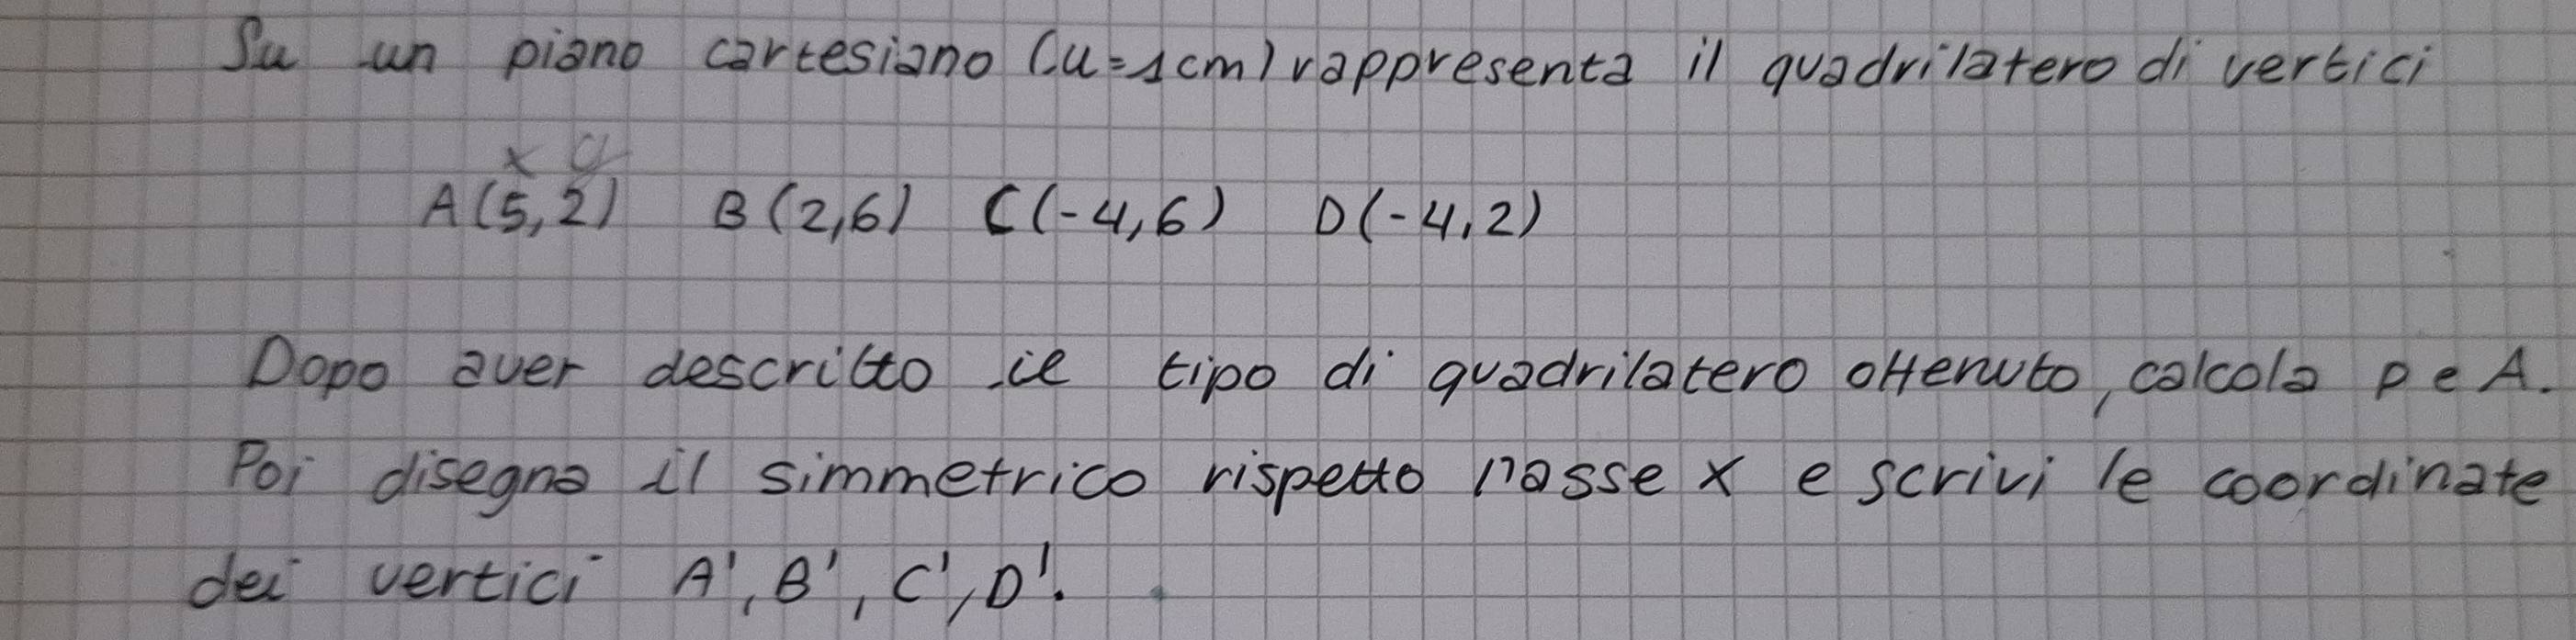 Su un piano cartesiano (u=1cm) rappresenta il quadrilatero di vertici
x y
A(5,2) B(2,6) C(-4,6) D(-4,2)
Dopo aver descritto il tipo di quadrilatero ottenuto, calcola p e A.
Poi disegna il simmetrico rispetto l'asse x e scrivi le coordinate
dei vertici A', B', C', D'.